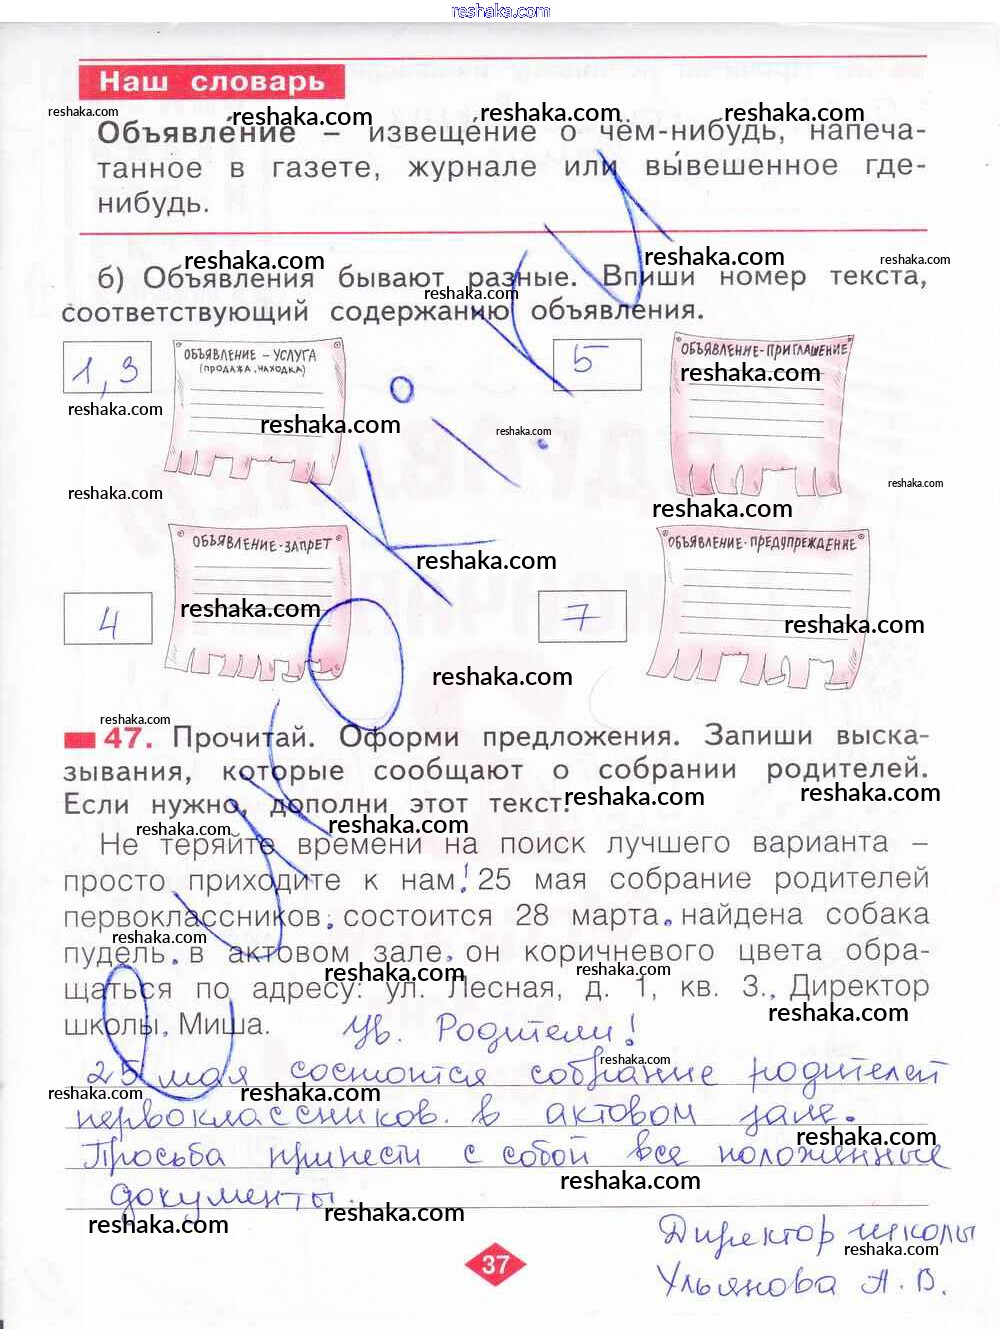 reshaka.com
Наш словарь
reshaka.com reshaka.com reshaka.com reshaka.com
Объявле́ние – извеще́ние о чём-нибудь, напеча-
танное в газете, журнале или вы́вешенное где-
нибудь.
reshaka.com reshaka.com reshaka.com
б) Объявления бывают разные. Впиши номер текста,
reshaka.com
соответствующий содержанию объявления.
1,3
ОБЪЯВЛЕНИЕ - УСЛУГА
(ПРОДАЖА, НАХОДКА)
5
ОБЪЯВЛЕНИЕ-ПРИГЛАШЕНИЕ
reshaka.com
reshaka.com
reshaka.com
reshaka.com
reshaka.com
reshaka.com
reshaka.com
4
ОБЪЯВЛЕНИЕ-ЗАПРЕТ
7
ОБЪЯВЛЕНИЕ-ПРЕДУПРЕЖДЕНИЕ
reshaka.com
reshaka.com
reshaka.com
reshaka.com
reshaka.com
47. Прочитай. Оформи предложения. Запиши выска-
зывания, которые сообщают о собрании родителей.
Если нужно, дополни этот текст.
reshaka.com reshaka.com
reshaka.com reshaka.com
Не теряйте времени на поиск лучшего варианта –
просто приходите к нам! 25 мая собрание родителей
первоклассников. состоится 28 марта. найдена собака
reshaka.com
пудель. в актовом зале. он коричневого цвета обра-
reshaka.com reshaka.com
щаться по адресу: ул. Лесная, д. 1, кв. 3., Директор
reshaka.com
школы, Миша.
Ув. Родители!
reshaka.com
25 мая состоится собрание родителей
reshaka.com reshaka.com
первоклассников. в актовом зале.
reshaka.com
Просьба принести с собой все положенные
reshaka.com
документы.
reshaka.com reshaka.com
Директор школы
reshaka.com
Ульянова А. В.
37